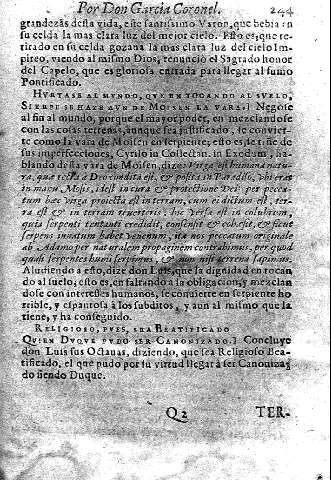 Por Don Garcia Coronel. 244
grandezas desta vida, este santissimo Varon, que bebia en
su celda la mas clara luz del mejor cielo. Esto es, que re-
tirado en su celda gozana la mas clara luz del cielo Im-
pireo, viendo al mismo Dios, renunciò el Sagrado honor
del Capelo, que es gloriosa entrada para llegar al sumo
Pontificado.
HVRTASE AL MVNDO, QVE EN TOCANDO AL SVELO,
SIERPE SE HAZE AVN DE MOISEN LA VARA. ] Negose
al fin al mundo, porque el mayor poder, en mezclandose
con las cosas terrenas, aunque sea justificado, se convier-
te como la vara de Moisen en serpiente, esto es, se tiñe de
sus imperfecciones. Cyrilo in Collectan. in Exodum, ha-
blando desta vara de Moisen, dize: Virga est humana natu-
ra, quæ recta à Deo condita est, & posita in Paradiso, vbi erat
in manu Moisi, id est in cura & protectione Dei: per pecca-
tum hæc virga proiecta est in terram, cum ei dictum est, ter-
ra est & in terram reuerteris. Inc versa est in colubrum,
quia serpenti tentanti credidit, consensit & cohæsit, & sicut
serpens innatum habet venenum, ita nos peccatum originale
ab Adamo per naturalem propaginem contrahimus, per quod
quasi serpentes humi serpimus, & non nisi terrena sapimus.
Aludiendo a esto, dize don Luis, que la dignidad en tocan
do al suelo, esto es, en faltando a la obligacion, y mezclan
dose con interesses humanos, se convierte en serpiente ho
rrible, y espantosa à los subditos, y aun al mismo que la
tiene, y ha conseguido.
RELIGIOSO, PVES, SEA BEATIFICADO
QVIEN DVQVE PVDO SER CANONIZADO. ] Concluye
don Luis sus Octauas, diziendo, que sea Religioso Bea-
tificado, el que pudo por su virtud llegar à ser Canoniza,
do siendo Duque.
Q2 TER-